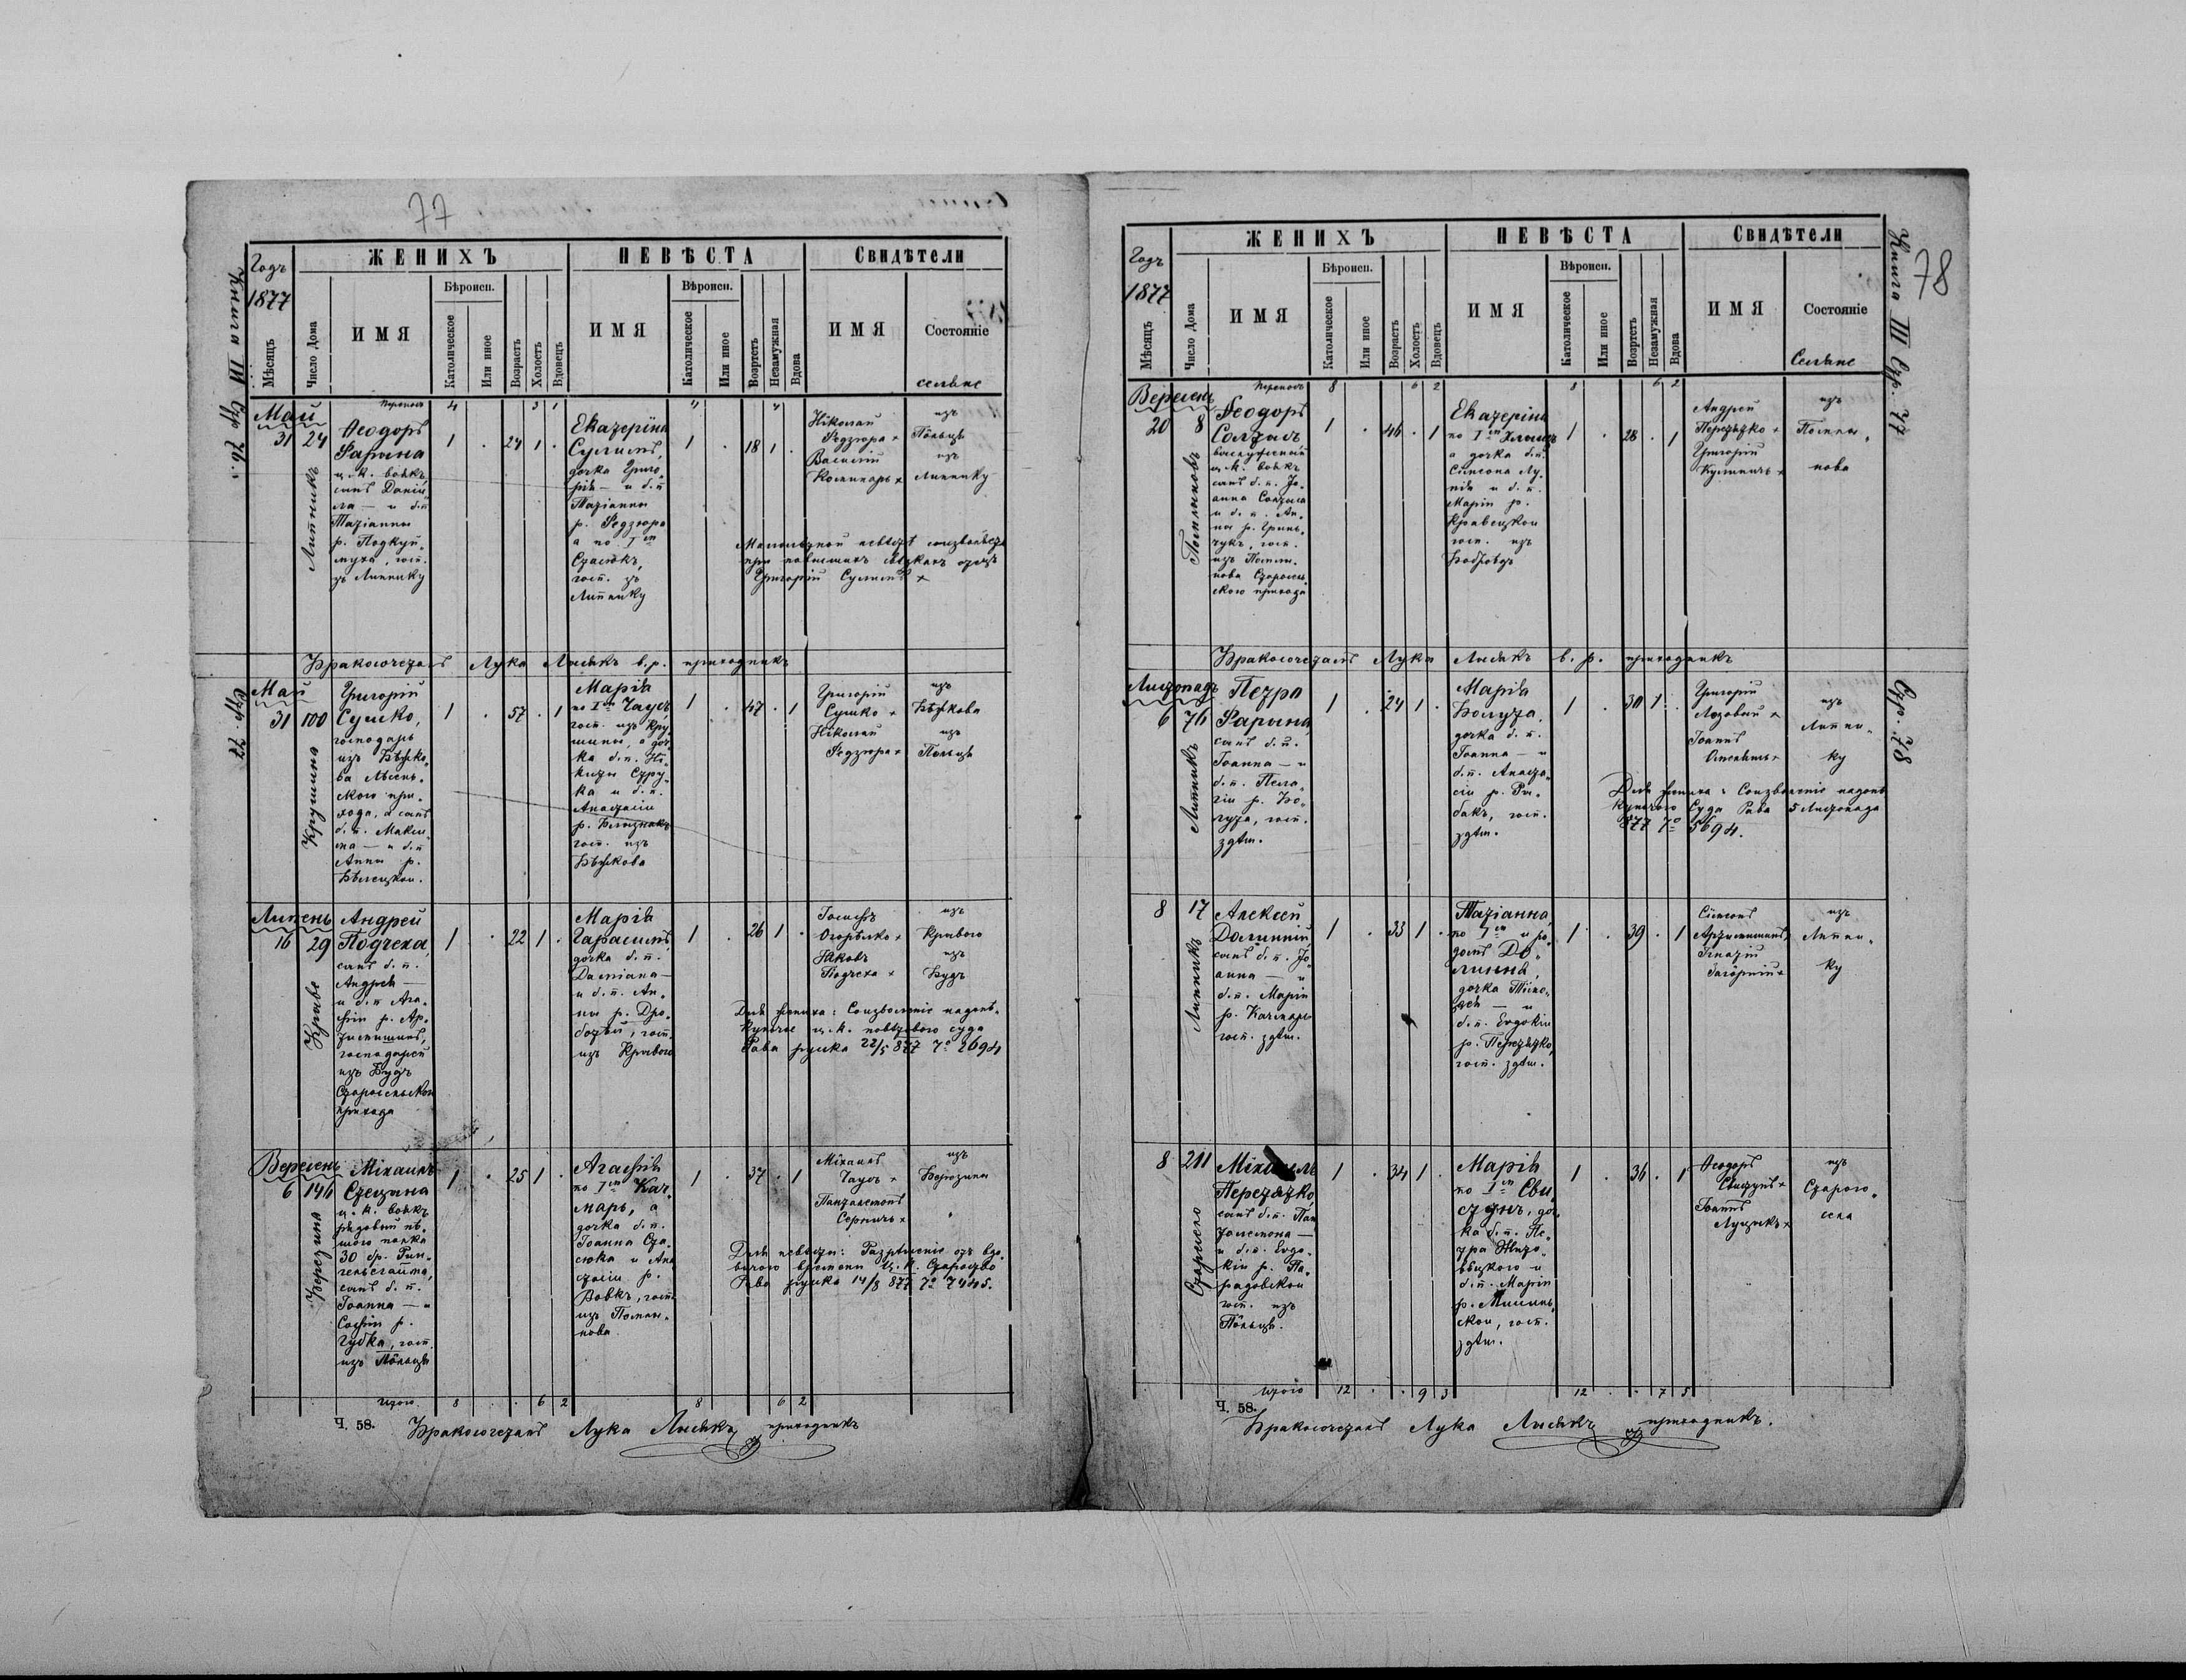 77
Книга III Стр. 76.
Стр. 77
Годъ
1877
Мѣсяцъ
Число Дома
ЖЕНИХЪ
ИМЯ
Вѣроисп.
Католическое
Или иное
Возрастъ
Холостъ
Вдовецъ
НЕВѢСТА
ИМЯ
Вѣроисп.
Католическое
Или иное
Возрастъ
Незамужная
Вдова
Свидѣтели
ИМЯ
Состояніе
селяне
Май
31
24
Липникъ
Переносъ 4 3 1
Ѳеодоръ
Фарына
ц. к. воякъ,
сынъ Даніи„
ла — и б.п.
Татіанны
р. Подкуй„
муха, госп.
зъ Липнику
1 . 24 1 .
4 4
Екатеріна
Сулимъ,
дочка Григо„
рія — и б.п.
Татіанны
р. Федзюра
а по Iм
Стасюкъ,
госп. зъ
Липнику
1 . 18 1 .
Ніколай
Федзюра +
Василій
Коминаръ +
изъ
Пôльця
изъ
Липнику
Малолѣтной невѣстѣ соизволяетъ
при повысшихъ свѣдкахъ отецъ
Григорій Сулимъ +
Бракосочеталъ Лука Лисякъ в.р. приходникъ
Май
31
100
Крушина
Григорій
Сушко,
господарь
изъ
ского при„
хода, а сынъ
б.п. Макси„
ма — и б.п.
Анны р.
Бѣлецкои.
1 . 57 . 1
Марія
по Iм Гаусъ,
госп. изъ Кру„
шины, а доч„
ка б.п. Ни„
киты Стру„
ка и б.п.
Анастасіи
р. Близнакъ
госп. изъ
1 . 47 . 1
Григорій
Сушко +
Ніколай
Федзюра +
изъ
изъ
Пôльця
Липень
16
29
Криве
Андрей
Подчеха,
сынъ б.п.
Андрея —
и б.п. Ага„
фіи р. Ар„
тимишинъ,
господарей
изъ Будъ
Старосельского
прихода
1 . 22 1 .
Марія
Гарасимъ,
дочка б.п.
Даміана —
и б.п. Ан„
ны р. Дро„
ботѣй, госп.
изъ Кривого
1 . 26 1 .
Іосифъ
Огорѣлко +
Яковъ
Подчеха +
изъ
Кривого
изъ
Будъ
Для жениха: Соизволеніе надопѣ„
кунчое ц.к. повѣтового суда
Рава руска 22/5 877 Чо 2694
Вересень
6
146
Березина
Міхаилъ
Стецина
ц. к. воякъ
рядовый пѣ„
шого полка
30 бр. Рин„
гельсгайма,
сынъ б.п.
Іоанна — и
Софіи р.
Губка, госп.
изъ Пôльця
1 . 25 1 .
Агафія
по Iм Кач„
маръ, а
дочка б.п.
Іоанна Ста„
сюка и Ана
стасіи р.
Вовкъ, госп.
изъ Помлы„
нова.
1 . 37 . 1
Міхаилъ
Гаусъ +
Пантелеймонъ
+
изъ
Березины
Для невѣсты: Разрѣшеніе отъ вдо„
вичого времени Ц.К. Староство
Рава руска 14/8 877 Чо 7445.
итого 8 . . 6 2 8 6 2
Ч. 58.
Бракосочеталъ Лука Лисякъ приходникъ
78
Книга III Стр. 77
Стр. 78
Годъ
1877
Мѣсяцъ
Число Дома
ЖЕНИХЪ
ИМЯ
Вѣроисп.
Католическое
Или иное
Возрастъ
Холостъ
Вдовецъ
НЕВѢСТА
ИМЯ
Вѣроисп.
Католическое
Или иное
Возрастъ
Незамужная
Вдова
Свидѣтели
ИМЯ
Состояніе
Селяне
Вересень
20
8
Помлыновъ
Переносъ 8 6 2 8 6 2
Ѳеодоръ
Солтысъ,
выслуженый
ц.к. воякъ
сынъ б.п. Іо„
анна Солтыса
и б.п. Ан„
ны р. Гринь„
чукъ, госп.
изъ Помлы„
нова Старосель„
ского прихода
1 . 46 . 1
Екатеріна
по Iм
а дочка б.п.
Симеона Лу„
и б.п.
Маріи р.
Кравецкои
госп. изъ
1 . 28 . 1
Андрей
Перетятко +
Григорій
+
изъ
Помлы„
нова
Бракосочеталъ Лука Лисякъ в.р. приходникъ
Листопадъ
6
76
Липникъ
Петро
Фарына,
сынъ б.п.
Іоанна — и
б.п. Пела„
гіи р. Бо„
луга, госп.
здѣш.
1 . 24 1 .
Марія
Болута,
дочка б.п.
Іоанна — и
б.п. Анаста„
сіи р. Ры„
бакъ, госп.
здѣш.
1 . 30 1 .
Григорій
Лозовый +
Іоаннъ
Омелянъ +
изъ
Липни„
ку
Для жениха: Соизволеніе надопѣ
кунчого Суда Рава 5 Листопада
877 Чо 5694.
8
17
Липникъ
Алексей
Долинный,
сынъ б.п. Іо„
анна — и
б.п. Маріи
р. Качмаръ
госп. здѣш.
1 . 33 1 .
Татіанна,
по Iм и ро„
домъ До„
линна,
дочка Тимо„
ѳея — и
б.п. Евдокіи
р. Перетятко,
госп. здѣш.
1 . 39 . 1
Симеонъ
Артимишинъ
Ігнатій
+
изъ
Липни„
ку
8
211
Старосело
Міхаилъ
Перетятко,
сынъ б.п. Пан
телемона —
и б.п. Евдо„
кіи р. Па„
радовскои
госп. изъ
Пôльця.
1 . 34 1 .
Марія
по Iм Сви„
стунъ, доч„
ка б.п. Пе„
тра Жуко„
вецкого и
б.п. Маріи
р.
скои, госп.
здѣш.
1 . 36 . 1
Ѳеодоръ
Свистунъ +
Іоаннъ
Луцикъ +
изъ
Старого„
села
итого 12 . . 9 3 12 . . 7 5
Ч. 58.
Бракосочеталъ Лука Лисякъ приходникъ.